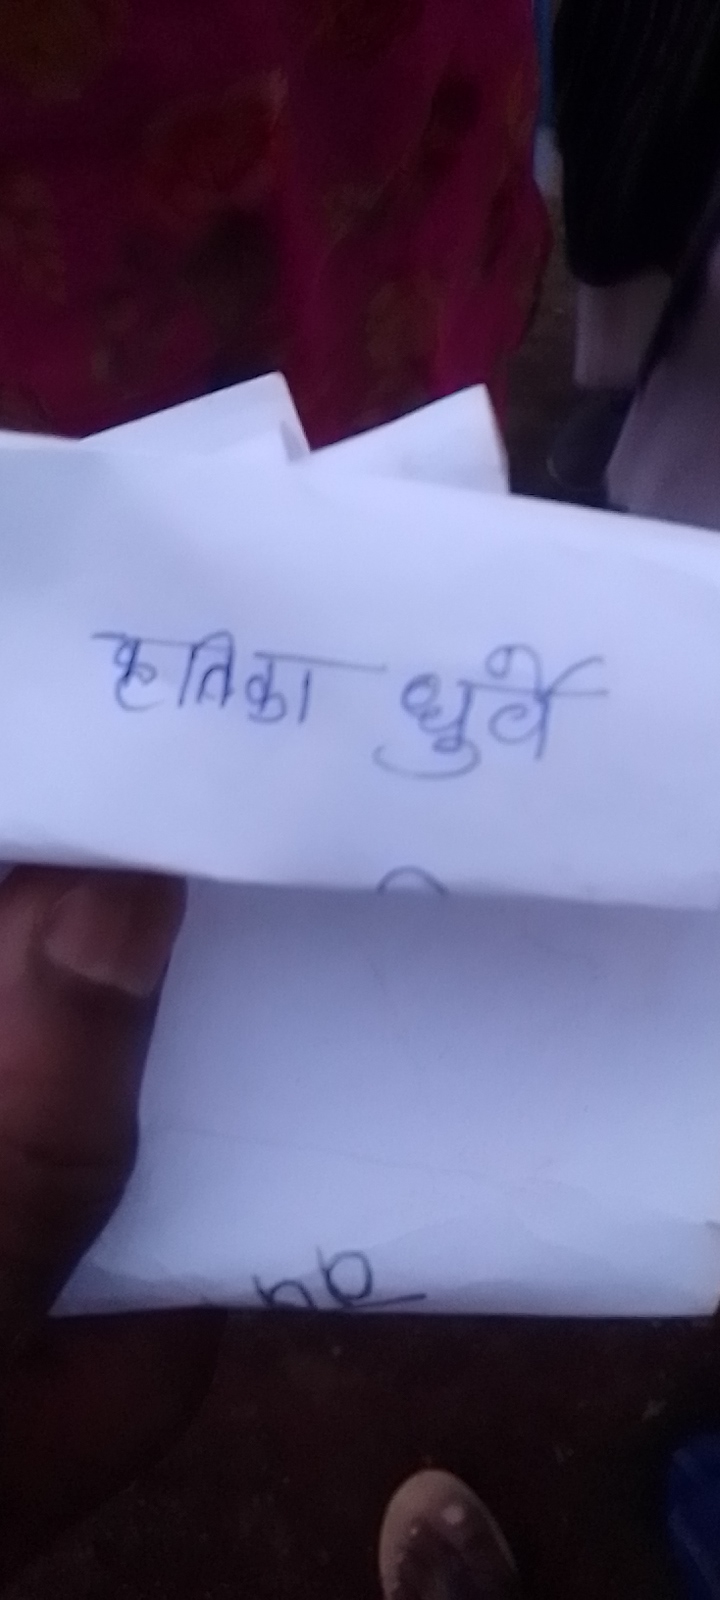 कृतिका धुर्वे